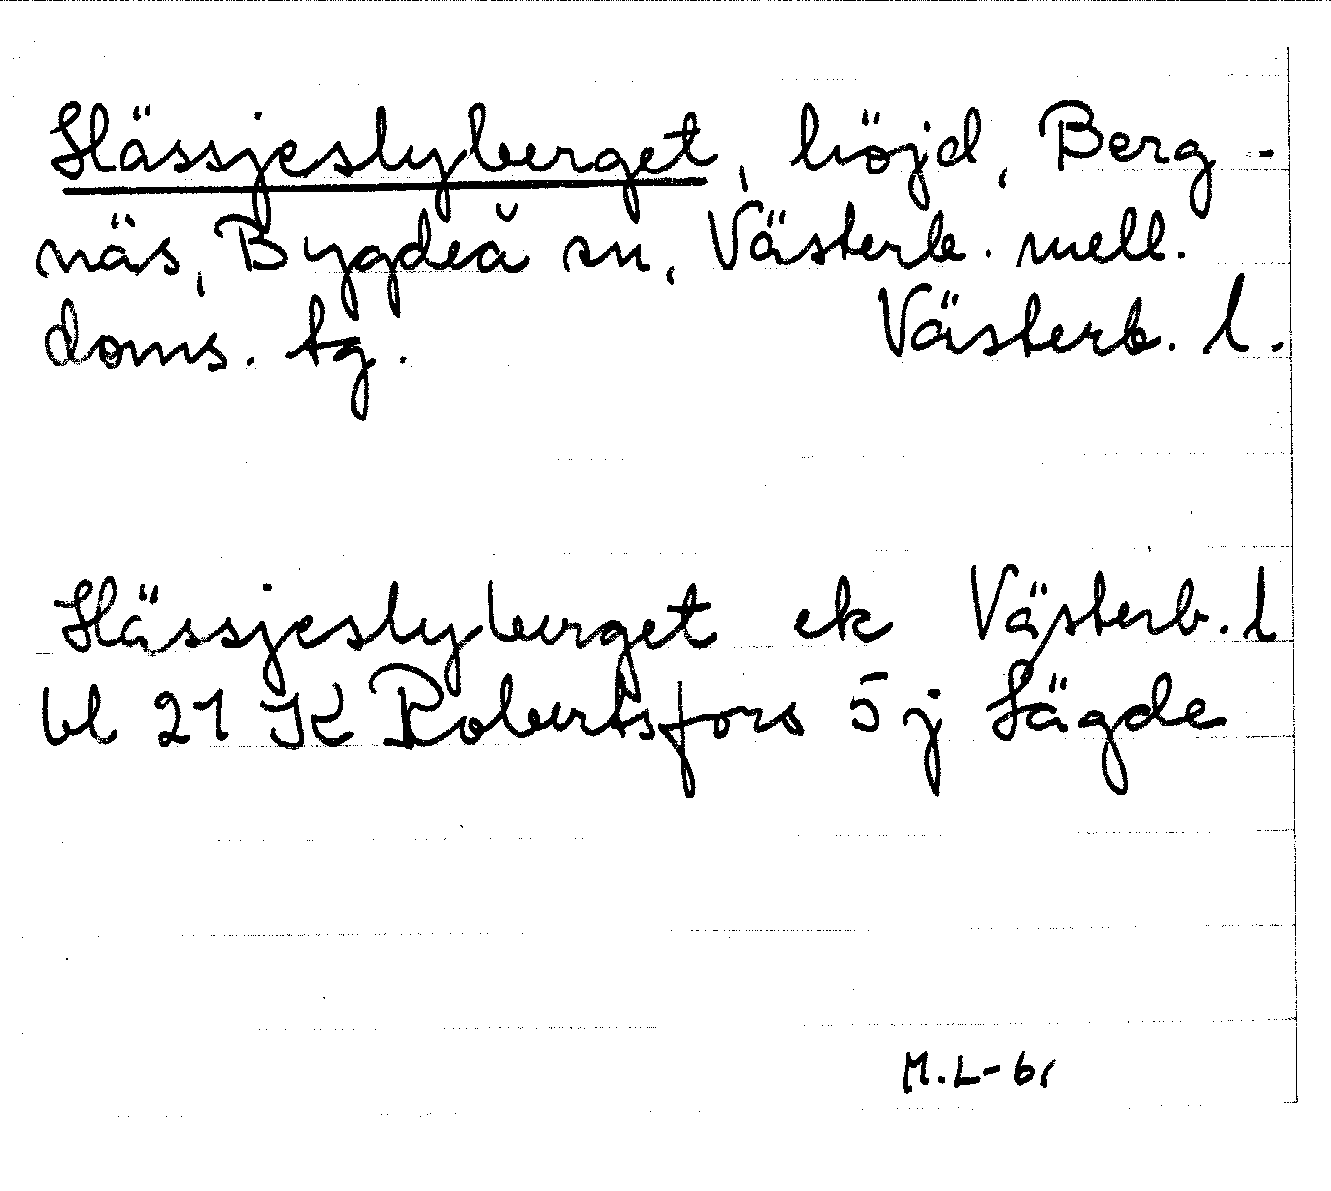 Hässjeslyberget, höjd, Berg-
näs, Bygdeå sn, Västerb. mell.
doms. tg. Västerb. l.
Hässjeslyberget ek Västerb. l
bl 21 K Robertsfors 5 j Lägde
M.L-61